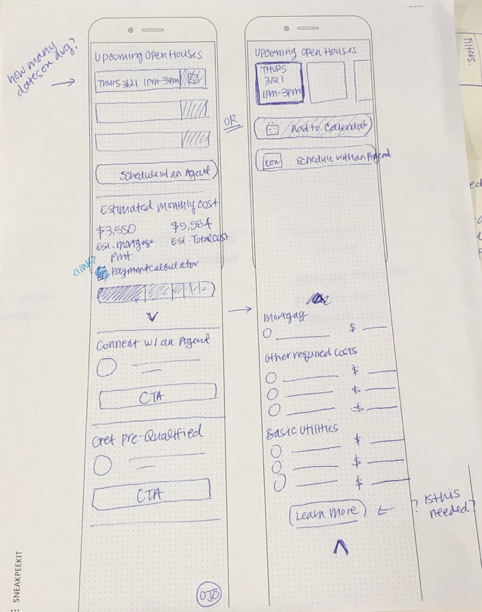 how many
dates on avg?
Upcoming Open Houses
THURS 3/21 1PM-3PM
Schedule w/ an Agent
Estimated Monthly Cost
$3,550
$5,584
Est. mortgage
pmt
Est. Total Cost
Payment Calculator
Connect w/ an Agent
CTA
Get Pre-Qualified
CTA
OR
Upcoming Open Houses
THURS
3/21
1PM-3PM
Add to Calendar
ICON
Schedule with an Agent
Mortgage
$
Other required costs
$
$
$
Basic Utilities
$
$
$
Learn More
? Is this
needed?
SNEAKPEEKIT
Filters.